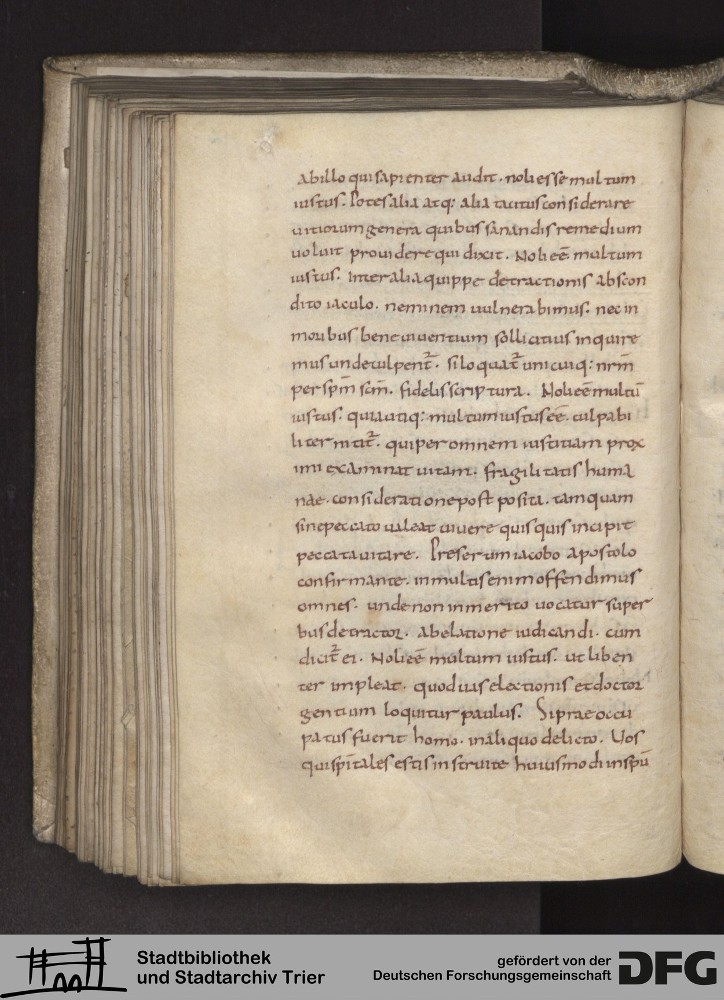 abillo quisapienter audit. noli esse multum
iustus. Potes alia atq: alia tacitus considerare
uitiorum genera quibus sanandis remedium
uoluit prouidere qui dixit. Noli eē multum
iustus. Inter alia quippe detractionis abscon
dito iaculo. neminem uulnerabimus. nec in
moribus bene uiuentium sollicitius inquire
mus unde culpent̄. si loquat̄ unicuiq: nr̄m
per sp̄m sc̄m. fidelis scriptura. Noli eē multū
iustus. quia utiq: multum iustus eē. culpabi
liter nitit̄. qui per omnem iustitiam prox
imi examinat uitam. fragilitatis huma
nae. consideratione post posita. tamquam
sine peccato ualeat uiuere quisquis incipit
peccata uitare. Presertim iacobo apostolo
confirmante. in multis enim offendimus
omnes. unde non inmerito uocatur super
bus detractor. ab elatione iudicandi. cum
dicit̄ ei. Noli eē multum iustus. ut liben
ter impleat. quod uas electionis et doctor
gentium loquitur paulus. Si praeoccu
patus fuerit homo. in aliquo delicto. Uos
qui sp̄itales estis instruite huiusmodi in sp̄u
Stadtbibliothek
und Stadtarchiv Trier
gefördert von der
Deutschen Forschungsgemeinschaft
DFG